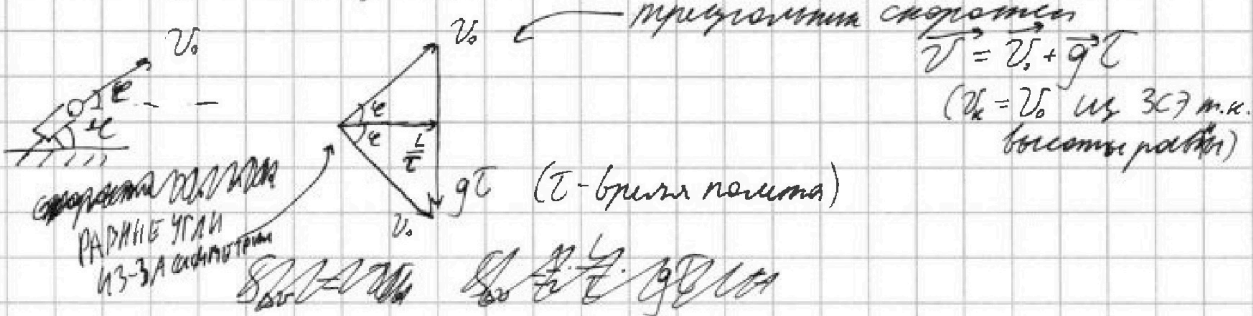 треугольник скоростей
V₀
V₀
V⃗ = V⃗₀ + g⃗τ
(Vₖ = V₀ из ЗСЭ т.к.
высоты равны)
φ
φ
φ
φ
L/τ
gτ (τ - время полета)
V₀
РАВНЫЕ УГЛЫ
ИЗ-ЗА симметрии